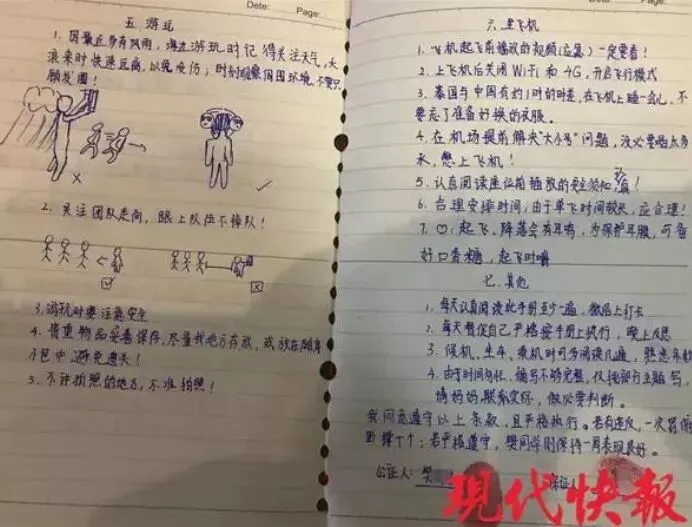 Date:
Page:
五 游玩
1. 因最近多有风雨，海边游玩时记得关注天气，大
浪来时快速远离，以免受伤；时刻观察周围环境，不要只
顾发圈！
2. 关注团队走向，跟上队伍不掉队！
3. 游玩时要注意安全
4. 贵重物品妥善保存，尽量找地方存放，或放在随身
包中，避免遗失！
5. 不许拍照的地方，不准拍照！
Date:
Page:
六. 坐飞机
1. 飞机起飞前播放的视频(应急)一定要看！
2. 上飞机后关闭WiFi和4G，开启飞行模式
3. 泰国与中国有约1时的时差，在飞机上睡一会儿，不
要忘了准备好换的衣服。
4. 在机场提前解决"大小号"问题，没必要喝太多
水，憋上飞机！
5. 认真阅读座位前播放的安全须知
6. 合理安排时间，由于单飞时间较长，应合理！
7. 起飞、降落会有耳鸣，为保护耳膜，可备
好口香糖，起飞时嚼
七. 其他
1. 每天认真阅读此手册至少一遍，微信上打卡
2. 每天督促自己严格按手册上执行，晚上反思
3. 候机、坐车、乘机时可多阅读几遍，
4. 由于时间匆忙，编写不够完整，仅
请妈妈联系实际，做必要判断。
我同意遵守以上条款，且严格执行。若有违反，一次
个；若严格遵守，樊同学则保持一周表现良好。
公证人：樊
证人
现代快報